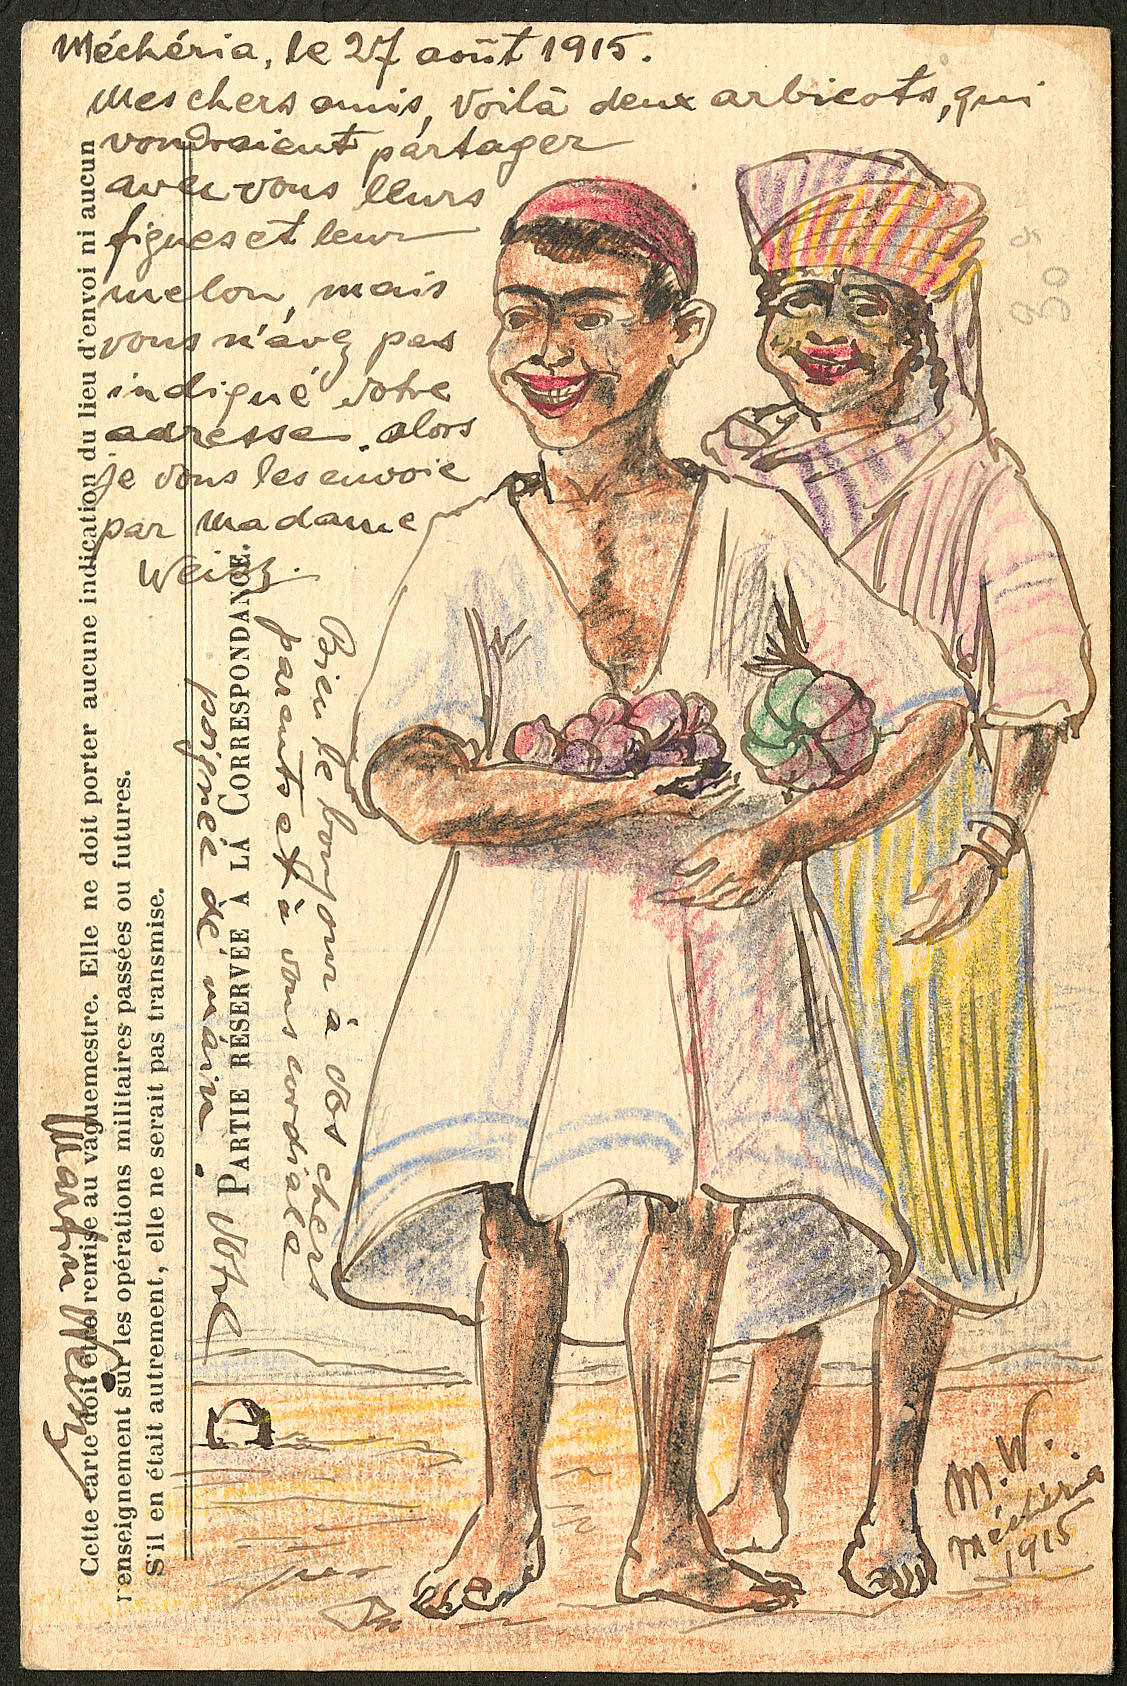 Méchéria, le 27 août 1915.
Mes chers amis, Voilà deux arbicots, qui
voudraient partager
avec vous leurs
figues et leur
melon, mais
vous n'avez pas
indiqué votre
adresse. alors
je vous les envoie
par Madame
Weisz.
Bien le bonjour à vos chers
parents et à vous cordiale
poignée de main. Votre
Martin Weisz
PARTIE RÉSERVÉE A LA CORRESPONDANCE.
Cette carte doit être remise au vaguemestre. Elle ne doit porter aucune indication du lieu d'envoi ni aucun
renseignement sur les opérations militaires passées ou futures.
S'il en était autrement, elle ne serait pas transmise.
M. W.
Méchéria
1915
30